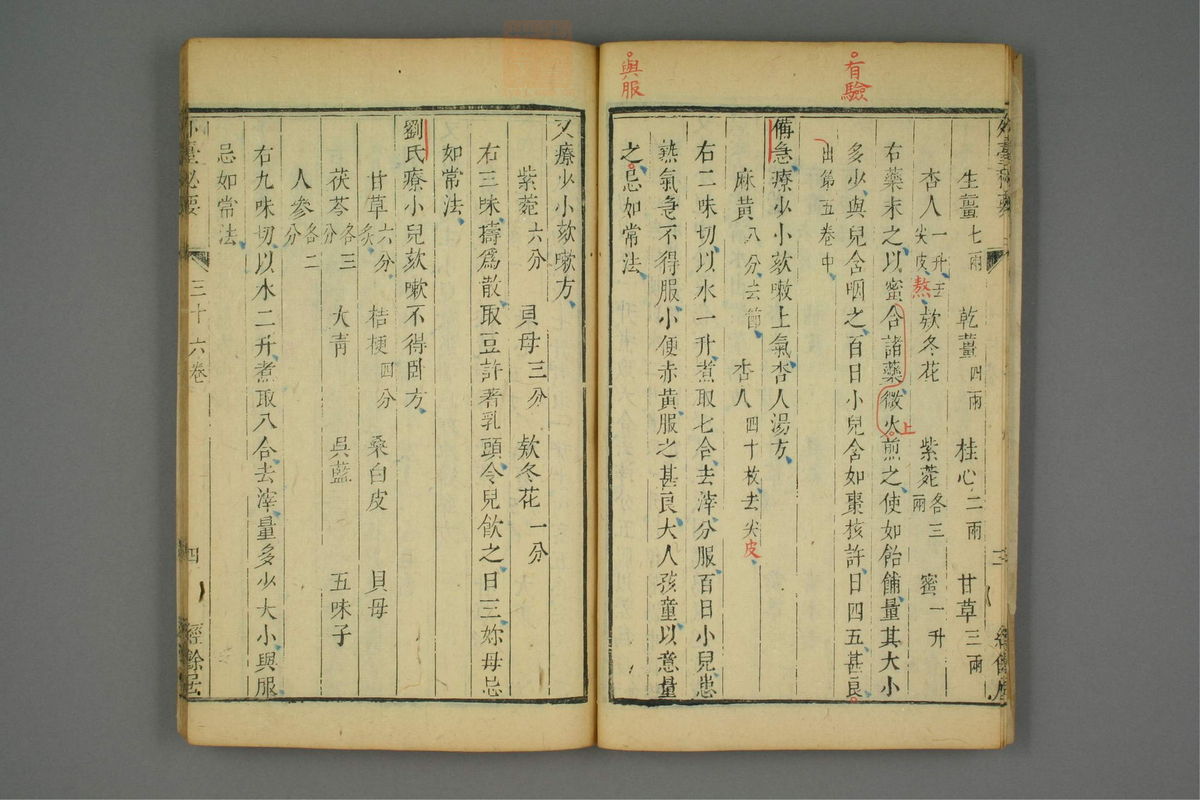 有驗
與服
生薑七兩 乾薑四兩 桂心二兩 甘草三兩
杏人一升去尖皮熬 欬冬花 紫菀各三兩 蜜一升
右藥末之以蜜合諸藥微火上煎之使如飴餔量其大小
多少與兒含咽之百日小兒含如棗核許日四五甚良
出第五卷中
備急療少小欬嗽上氣杏人湯方
麻黃八分去節 杏人四十枚去尖皮
右二味切以水一升煮取七合去滓分服百日小兒患
熱氣急不得服小便赤黃服之甚良大人孩童以意量
之忌如常法
又療少小欬嗽方
紫菀六分 貝母三分 欬冬花一分
右三味擣為散取豆許著乳頭令兒飲之日三妳母忌
如常法
劉氏療小兒欬嗽不得臥方
甘草六分炙 桔梗四分 桑白皮 貝母
茯苓各三分 大青 吳藍 五味子
人參各二分
右九味切以水二升煮取八合去滓量多少大小與服
忌如常法
外臺秘要 三十六卷 四 經餘居